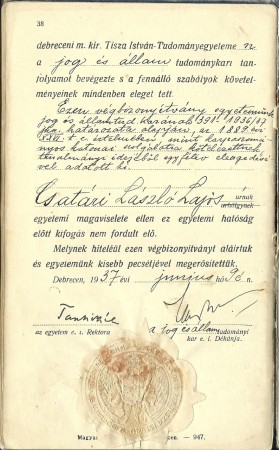 38
debreceni m. kir. Tisza István-Tudományegyetem az
a jog és állam tudománykari tan-
folyamot bevégezte s a fennálló szabályok követel-
ményeinek mindenben eleget tett.
Ezen végbizonyítvány egyetemünk
jog és államtud. karának 391-1936/37
jkv. határozata alapján, az 1889. évi
t.c. értelmében, mint
katonai szolgálatra kötelezettnek
tanulmányi idejéből egy félév elengedésé-
vel adatott ki.
Csatári László Lajos úrnak
úrhölgynek
egyetemi magaviselete ellen ez egyetemi hatóság
előtt kifogás nem fordult elő.
Melynek hiteléül ezen végbizonyítványt aláirtuk
és egyetemünk kisebb pecsétjével megerősítettük.
Debrecen, 1937 évi junius hó 9 n.
az egyetem e. i. Rektora
a jog és állam tudományi
kar e. i. Dékánja.
Magyar cen. — 947.